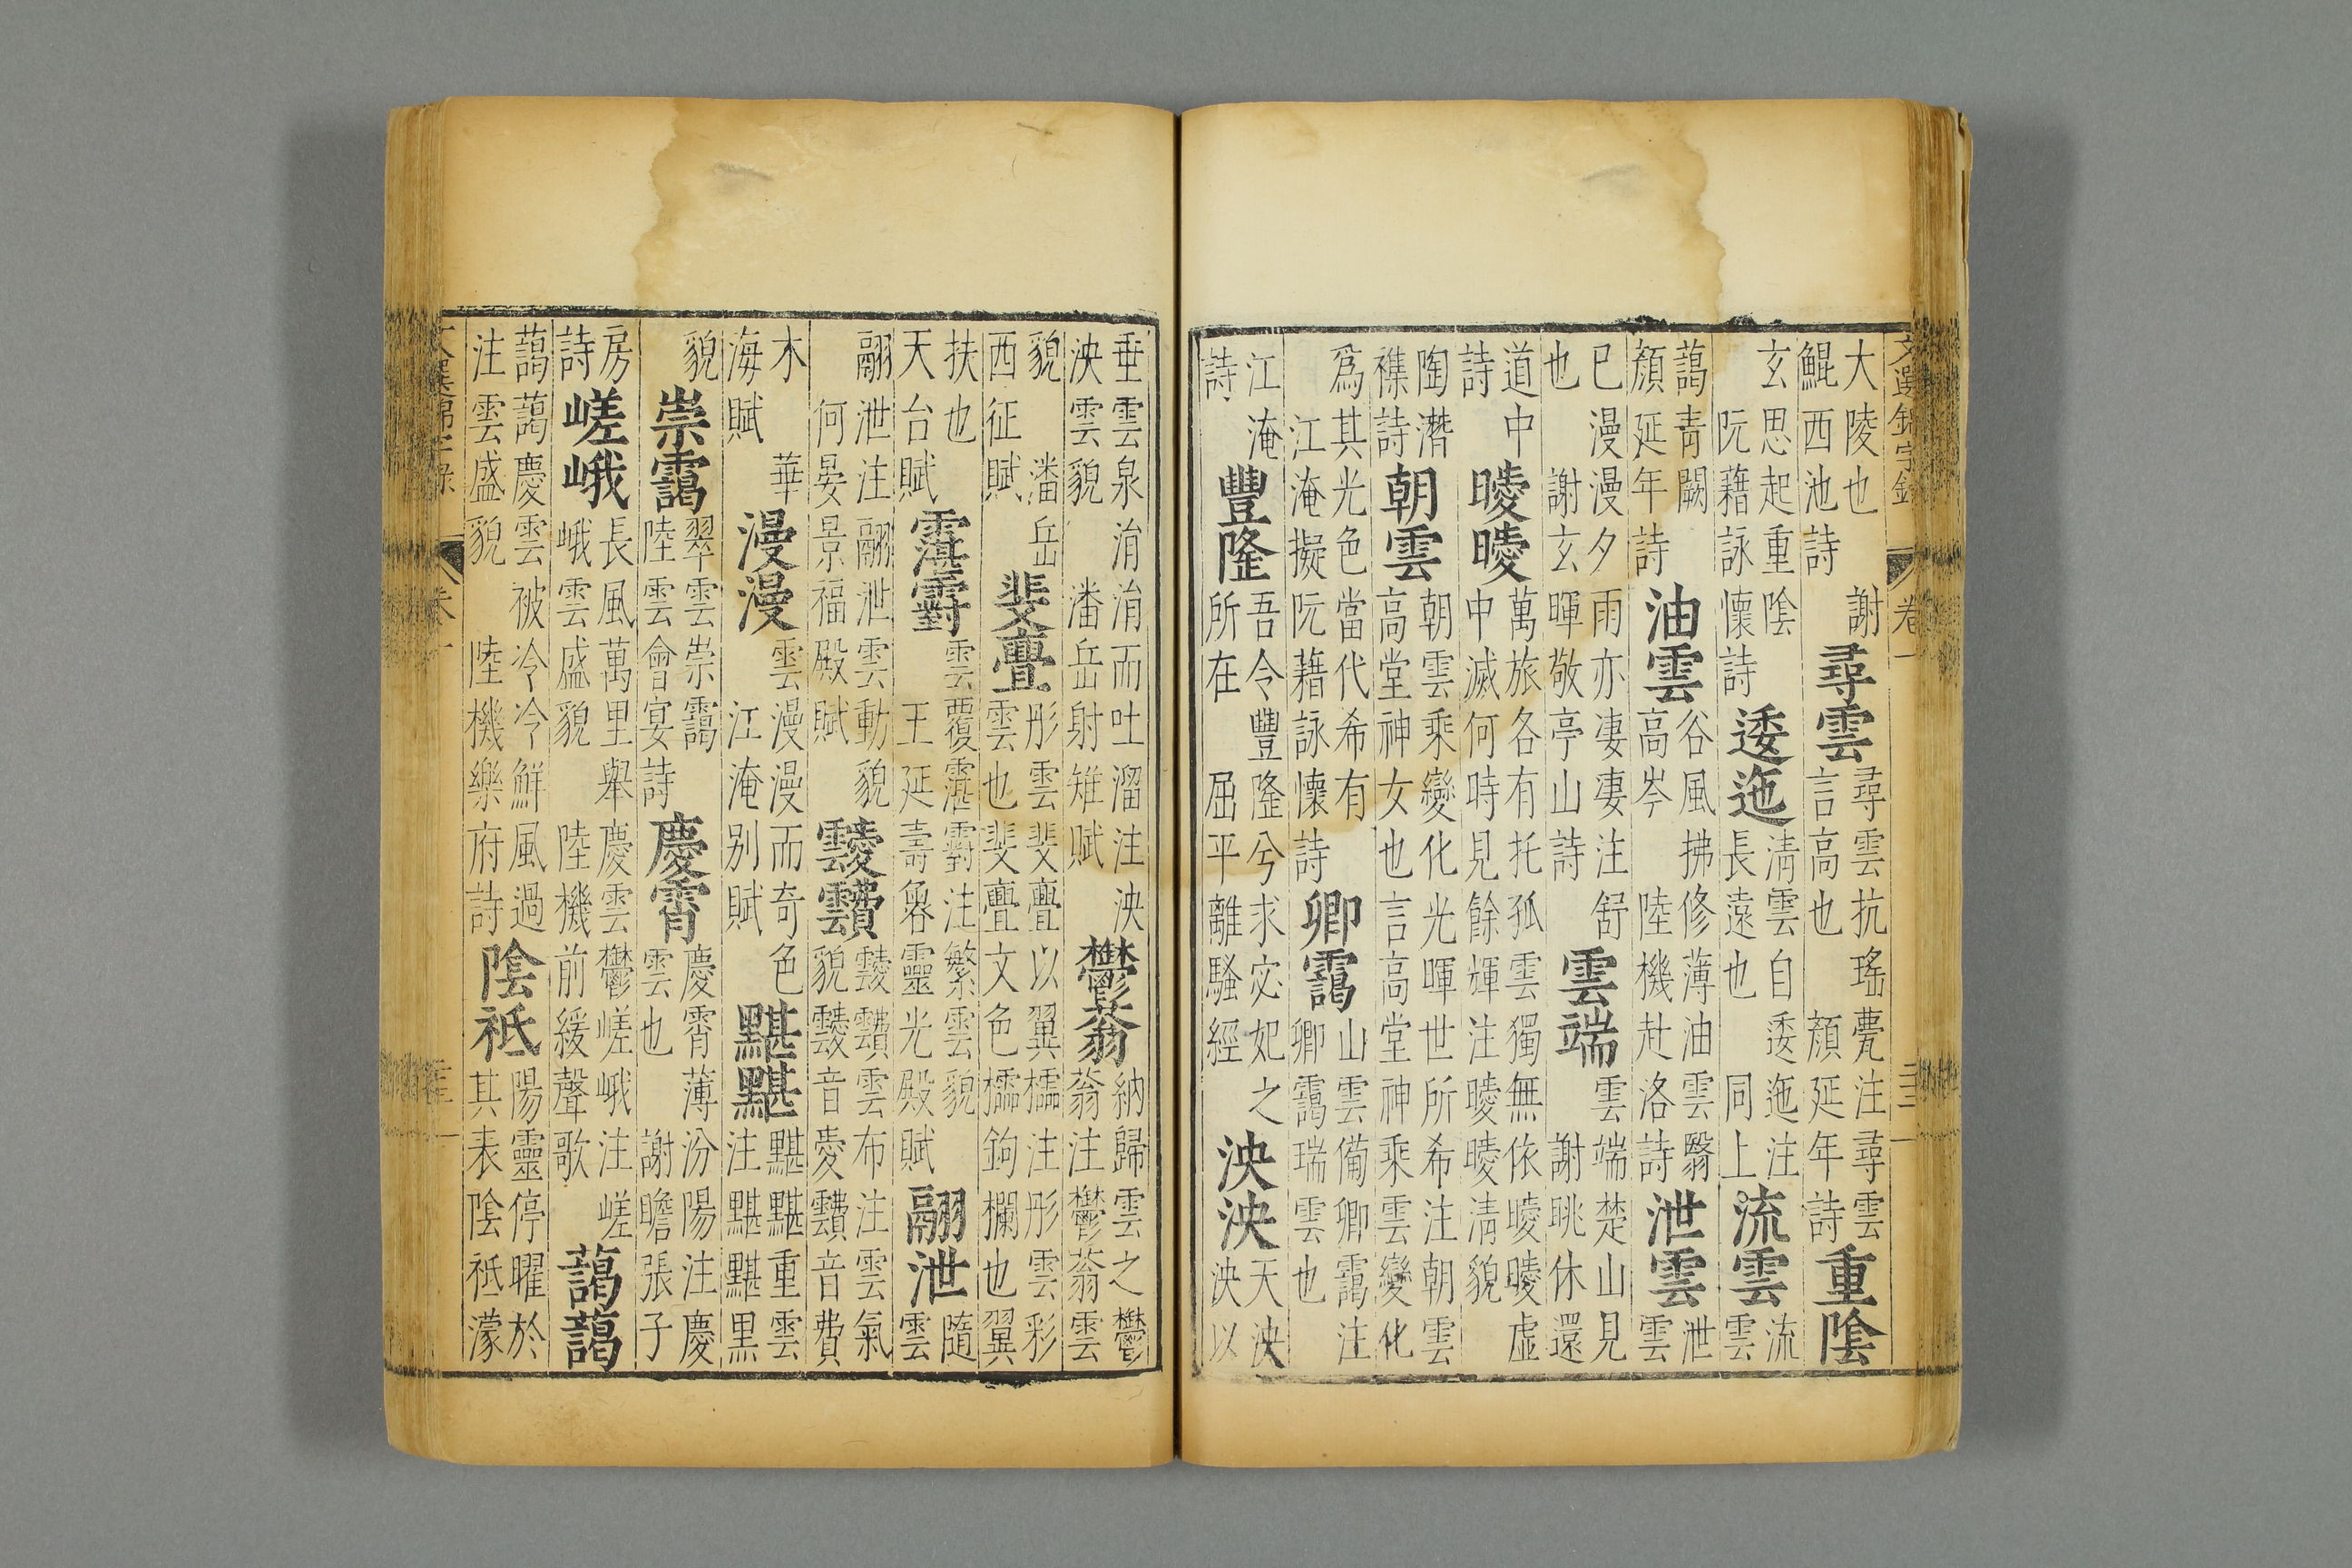 文選錦字錄 卷一
大陵也 謝
鯤西池詩
尋雲
尋雲抗瑤甍注尋雲
言高也 顏延年詩
重陰
玄思起重陰
阮藉詠懷詩
逶迤
清雲自逶迤注
長遠也 同上
流雲
流
雲
藹青闕
顏延年詩
油雲
谷風拂修薄油雲翳
高岑 陸機赴洛詩
泄雲
泄
雲
已漫漫夕雨亦凄凄注舒
也 謝玄暉敬亭山詩
雲端
雲端楚山見
謝眺休還
道中
詩
曖曖
萬旅各有托孤雲獨無依曖曖虛
中滅何時見餘輝注曖曖清貌
陶潛
襍詩
朝雲
朝雲乘變化光暉世所希注朝雲
高堂神女也言高堂神乘雲變化
爲其光色當代希有
江淹擬阮藉詠懷詩
卿靄
山雲備卿靄注
卿靄瑞雲也
江淹
詩
豐隆
吾令豐隆兮求宓妃之
所在 屈平離騷經
泱泱
天泱
泱以
垂雲泉涓涓而吐溜注泱
泱雲貌 潘岳射雉賦
鬱蓊
納歸雲之鬱
蓊注鬱蓊雲
貌 潘岳
西征賦
斐亹
彤雲斐亹以翼櫺注彤雲彩
雲也斐亹文色櫺鉤欄也翼
扶也
天台賦
霮䨴
雲覆霮䨴注繁雲貌
王延壽魯靈光殿賦
翮泄
隨
雲
翮泄注翮泄雲動貌
何晏景福殿賦
靉靅
靉靅雲布注雲氣
貌靉音愛靅音費
木華
海賦
漫漫
雲漫漫而奇色
江淹别賦
黮黮
黮黮重雲
注黮黮黑
貌
崇靄
翠雲崇靄
陸雲會宴詩
慶霄
慶霄薄汾陽注慶
雲也 謝瞻張子
房
詩
嵯峨
長風萬里舉慶雲鬱嵯峨注嵯
峨雲盛貌 陸機前緩聲歌
藹藹
藹藹慶雲被泠泠鮮風過
注雲盛貌 陸機樂府詩
陰祇
陽靈停曜於
其表陰祇濛